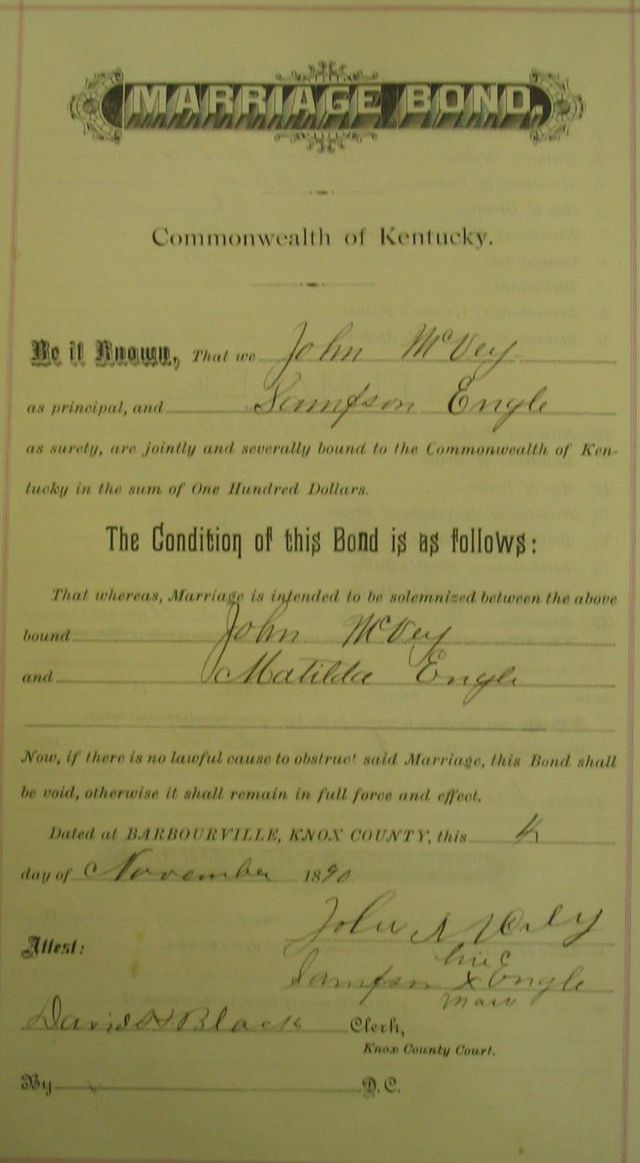 MARRIAGE BOND.
Commonwealth of Kentucky.
Be it Known, That we John McVey
as principal, and Sampson Engle
as surety, are jointly and severally bound to the Commonwealth of Ken-
tucky in the sum of One Hundred Dollars.
The Condition of this Bond is as follows:
That whereas, Marriage is intended to be solemnized between the above
bound John McVey
and Matilda Engle
Now, if there is no lawful cause to obstruct said Marriage, this Bond shall
be void, otherwise it shall remain in full force and effect.
Dated at BARBOURVILLE, KNOX COUNTY, this 4
day of November 1890
John
Attest:
his
Sampson X Engle
mark
David H Black Clerk,
Knox County Court.
By D.C.